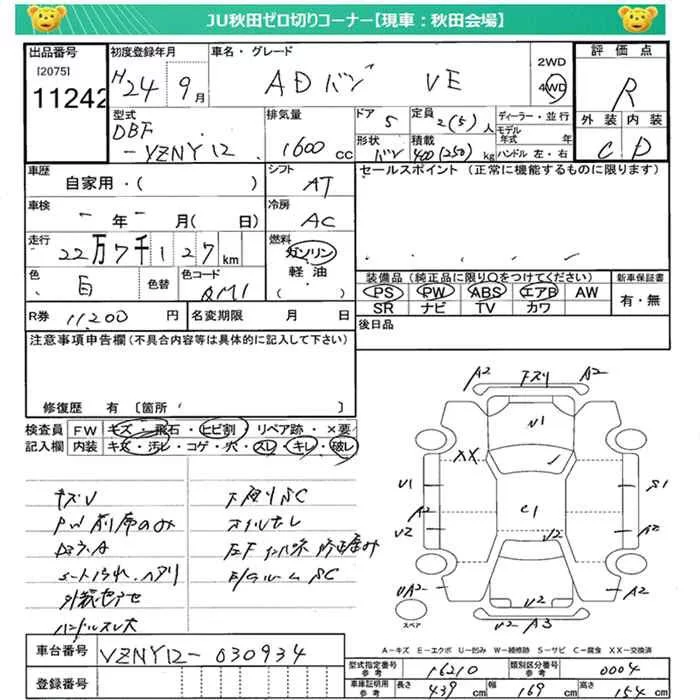 JU秋田ゼロ切りコーナー【現車：秋田会場】
出品番号 初度登録年月 車名・グレード 2WD 評価点
[2075] H24 9月 ADバン VE 4WD R
11242
型式 排気量 ドア 定員 ディーラー・並行 外装 内装
DBF 5 2(5)人 モデル年式 年
-VZNY12 1600cc 形状 バン 積載 400(250)kg ハンドル 左・右 C D
車歴 シフト セールスポイント (正常に機能するものに限ります)
自家用・( ) AT
車検 冷房
年 月( 日) AC
走行 燃料
22万7千127km ガソリン
軽油
色 色替 色コード ( ) 装備品(純正品に限り○をつけてください) 新車保証書
白 QM1 PS PW ABS エアB AW 有・無
SR ナビ TV カワ
R券 11,200円 名変期限 月 日 後日品
注意事項申告欄(不具合内容等は具体的に記入して下さい)
修復歴 有 [箇所 ]
検査員 FW キズ・飛石・ヒビ割・リペア跡・×要
記入欄 内装 キズ・汚レ・コゲ・穴・スレ・キレ・破レ
キズU 下廻りSC
PW前席のみ オイルモレ
外装色アセ
ハンドルスレ大
A2 下スリ A2
U1
XX
U1 S1
C1
A2 A2
U2 U2
UA2 A2
U2 A3
スペア
A－キズ E－エクボ U－凹み W－補修跡 S－サビ C－腐食 XX－交換済
車台番号 VZNY12-030934
型式指定番号 参考 16210 類別区分番号 参考 0004
登録番号 車庫証明用 参考 長さ 439cm 幅 169cm 高さ 154cm